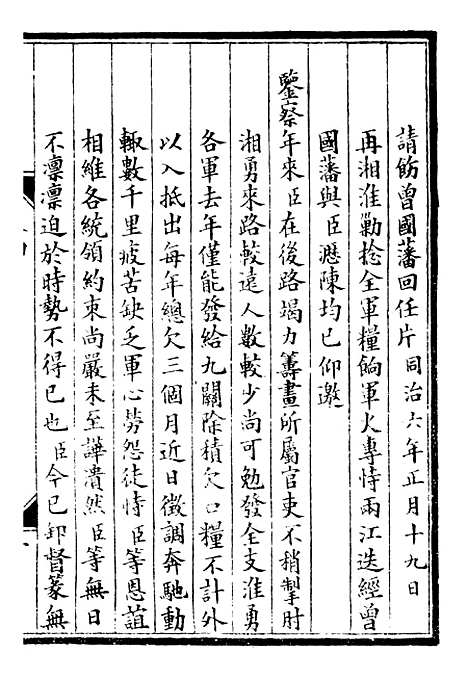 請飭曾國藩回任片同治六年正月十九日
再湘淮勦捻全軍糧餉軍火專恃兩江迭經曾
國藩與臣瀝陳均已仰邀
鑒察年來臣在後路竭力籌畫所屬官吏不稍掣肘
湘勇來路較遠人數較少尚可勉發全支淮勇
各軍去年僅能發給九關除積欠口糧不計外
以入抵出每年總欠三個月近日徵調奔馳動
輒數千里疲苦缺乏軍心勞怨徒恃臣等恩誼
相維各統領約束尚嚴未至譁潰然臣等無日
不凛凛迫於時勢不得已也臣今已卸督篆無